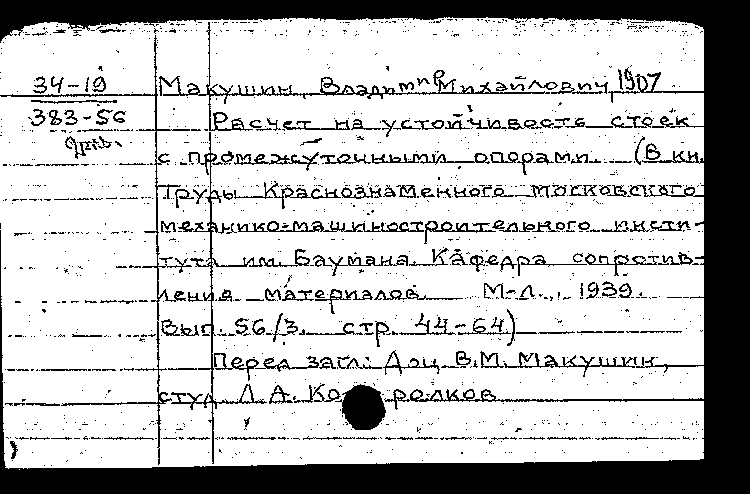 34-19
383-56
Макушин, Владимир Михайлович, 1907
Расчет на устойчивость стоек
с промежуточными опорами. (В кн.
Труды Краснознаменного московского
механико-машиностроительного инсти-
тута им. Баумана. Кафедра сопротив-
ления материалов. М-Л., 1939.
Вып. 56/3. стр. 44-64)
Перед загл: Доц. В.М. Макушин,
студ Л.А.